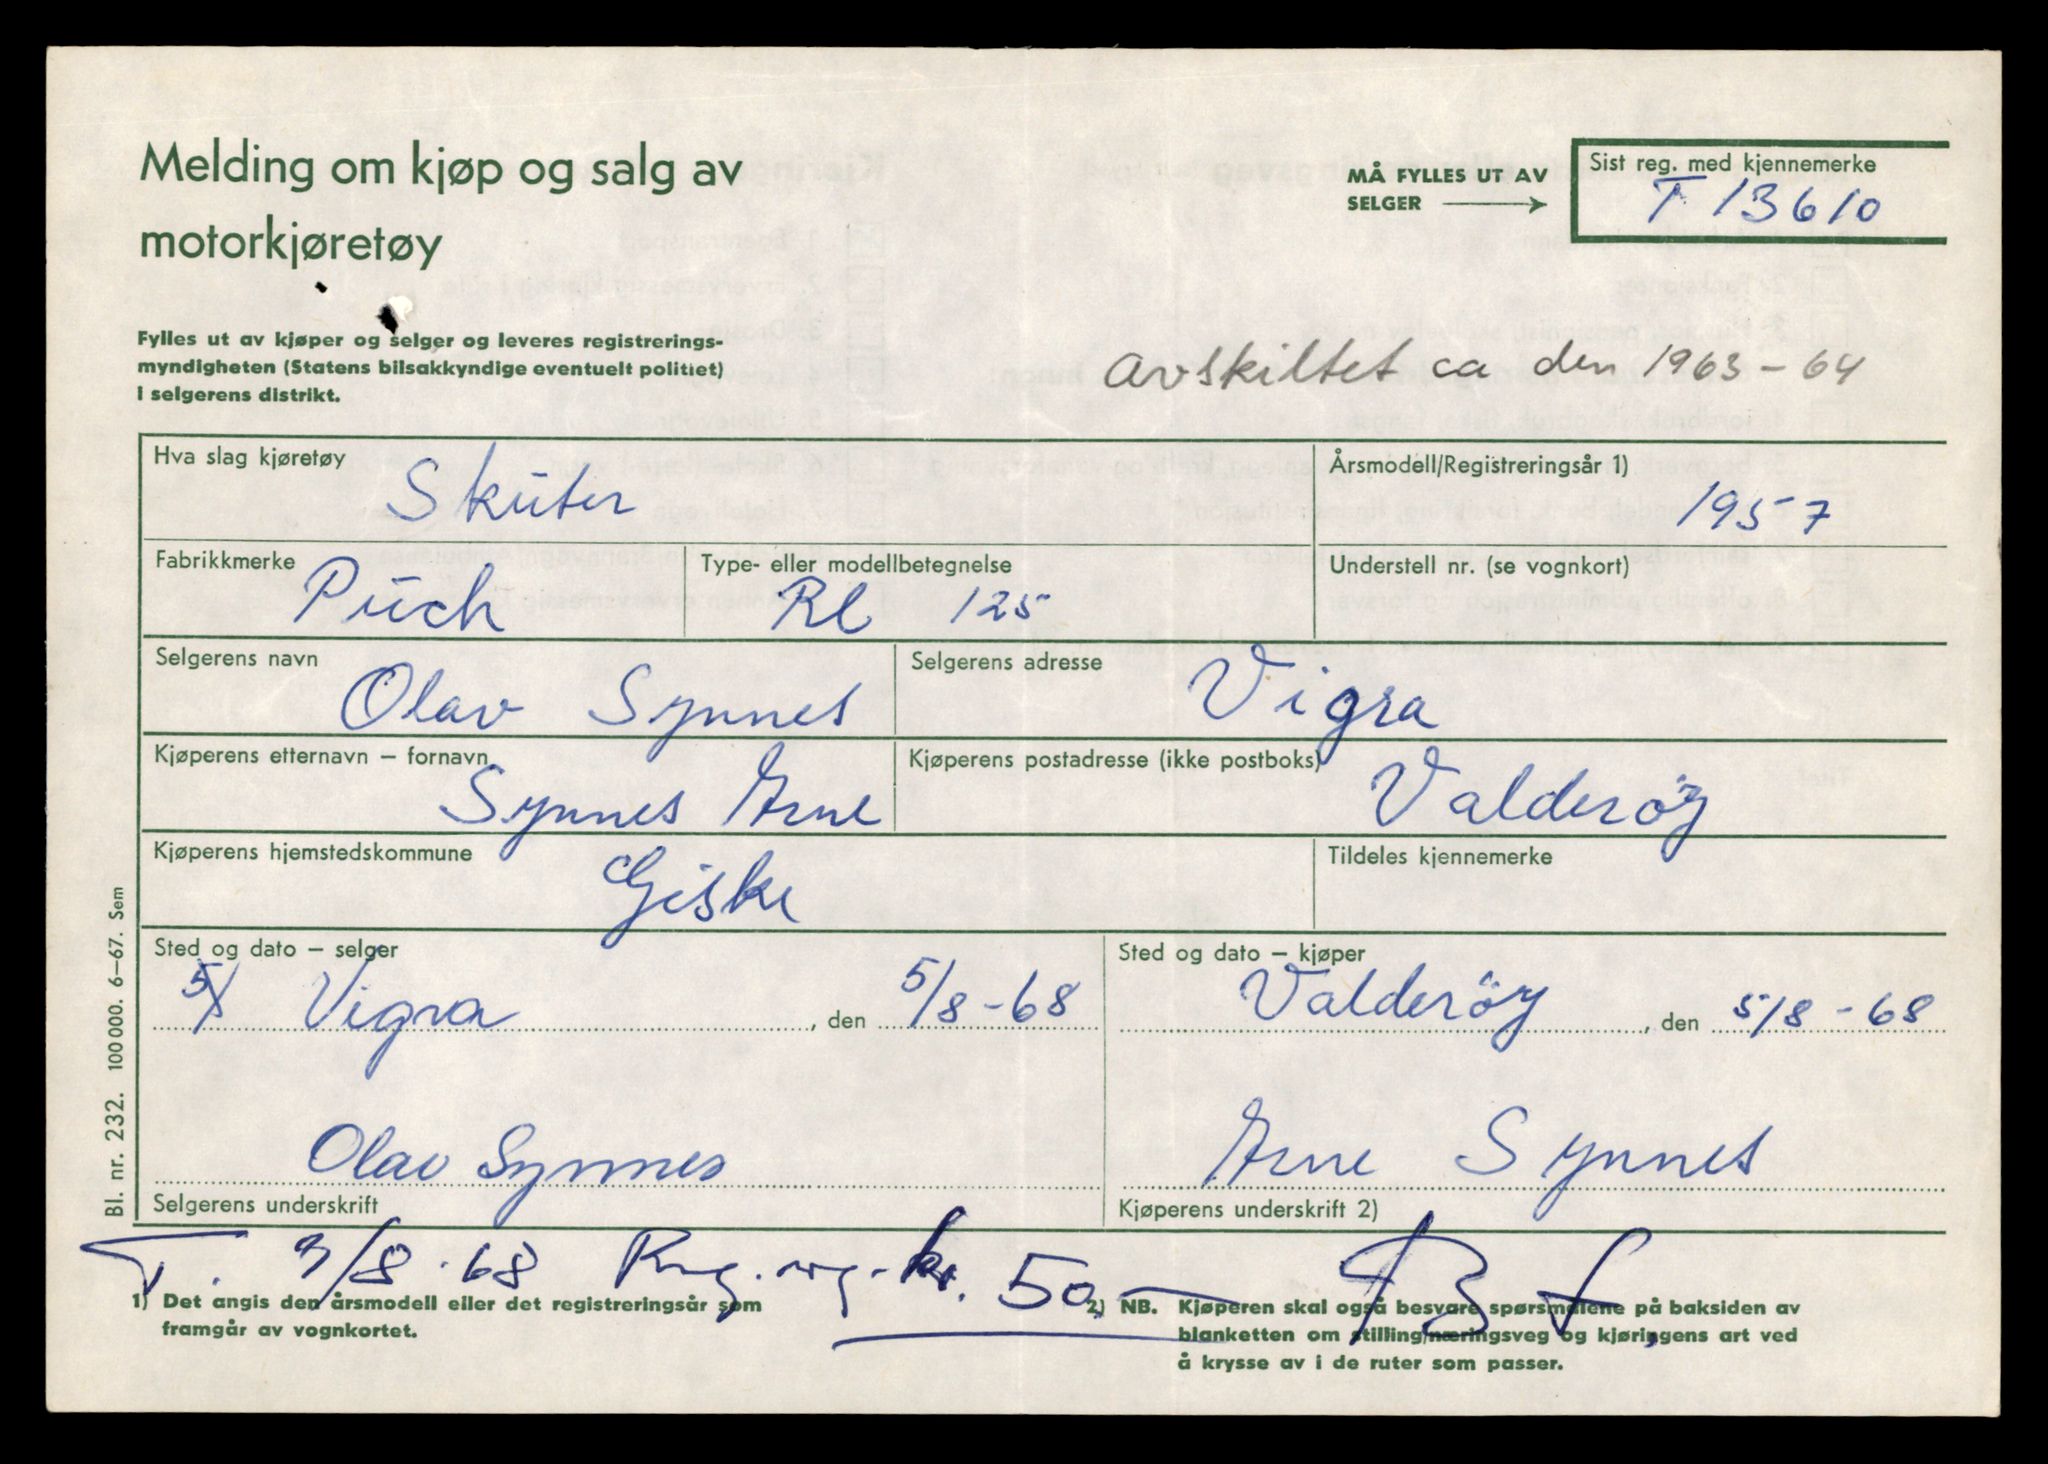 Melding om kjøp og salg av
motorkjøretøy
MÅ FYLLES UT AV
SELGER
Sist reg. med kjennemerke
T 13610
Fylles ut av kjøper og selger og leveres registrerings-
myndigheten (Statens bilsakkyndige eventuelt politiet)
i selgerens distrikt.
Avskiltet ca den 1963-64
Hva slag kjøretøy
Skuter
Årsmodell/Registreringsår 1)
1957
Fabrikkmerke
Puch
Type- eller modellbetegnelse
RL 125
Understell nr. (se vognkort)
Selgerens navn
Olav Synnes
Selgerens adresse
Vigra
Kjøperens etternavn – fornavn
Synnes Arne
Kjøperens postadresse (ikke postboks)
Valderöy
Kjøperens hjemstedskommune
Giske
Tildeles kjennemerke
Sted og dato – selger
5/8 Vigra, den 5/8-68
Sted og dato – kjøper
Valderöy, den 5/8-68
Olav Synnes
Selgerens underskrift
Arne Synnes
Kjøperens underskrift 2)
T. /8.68 kr. 50.-
1) Det angis den årsmodell eller det registreringsår som
framgår av vognkortet.
2) NB. Kjøperen skal også besvare spørsmålene på baksiden av
blanketten om stilling/næringsveg og kjøringens art ved
å krysse av i de ruter som passer.
Bl. nr. 232. 100 000. 6–67. Sem